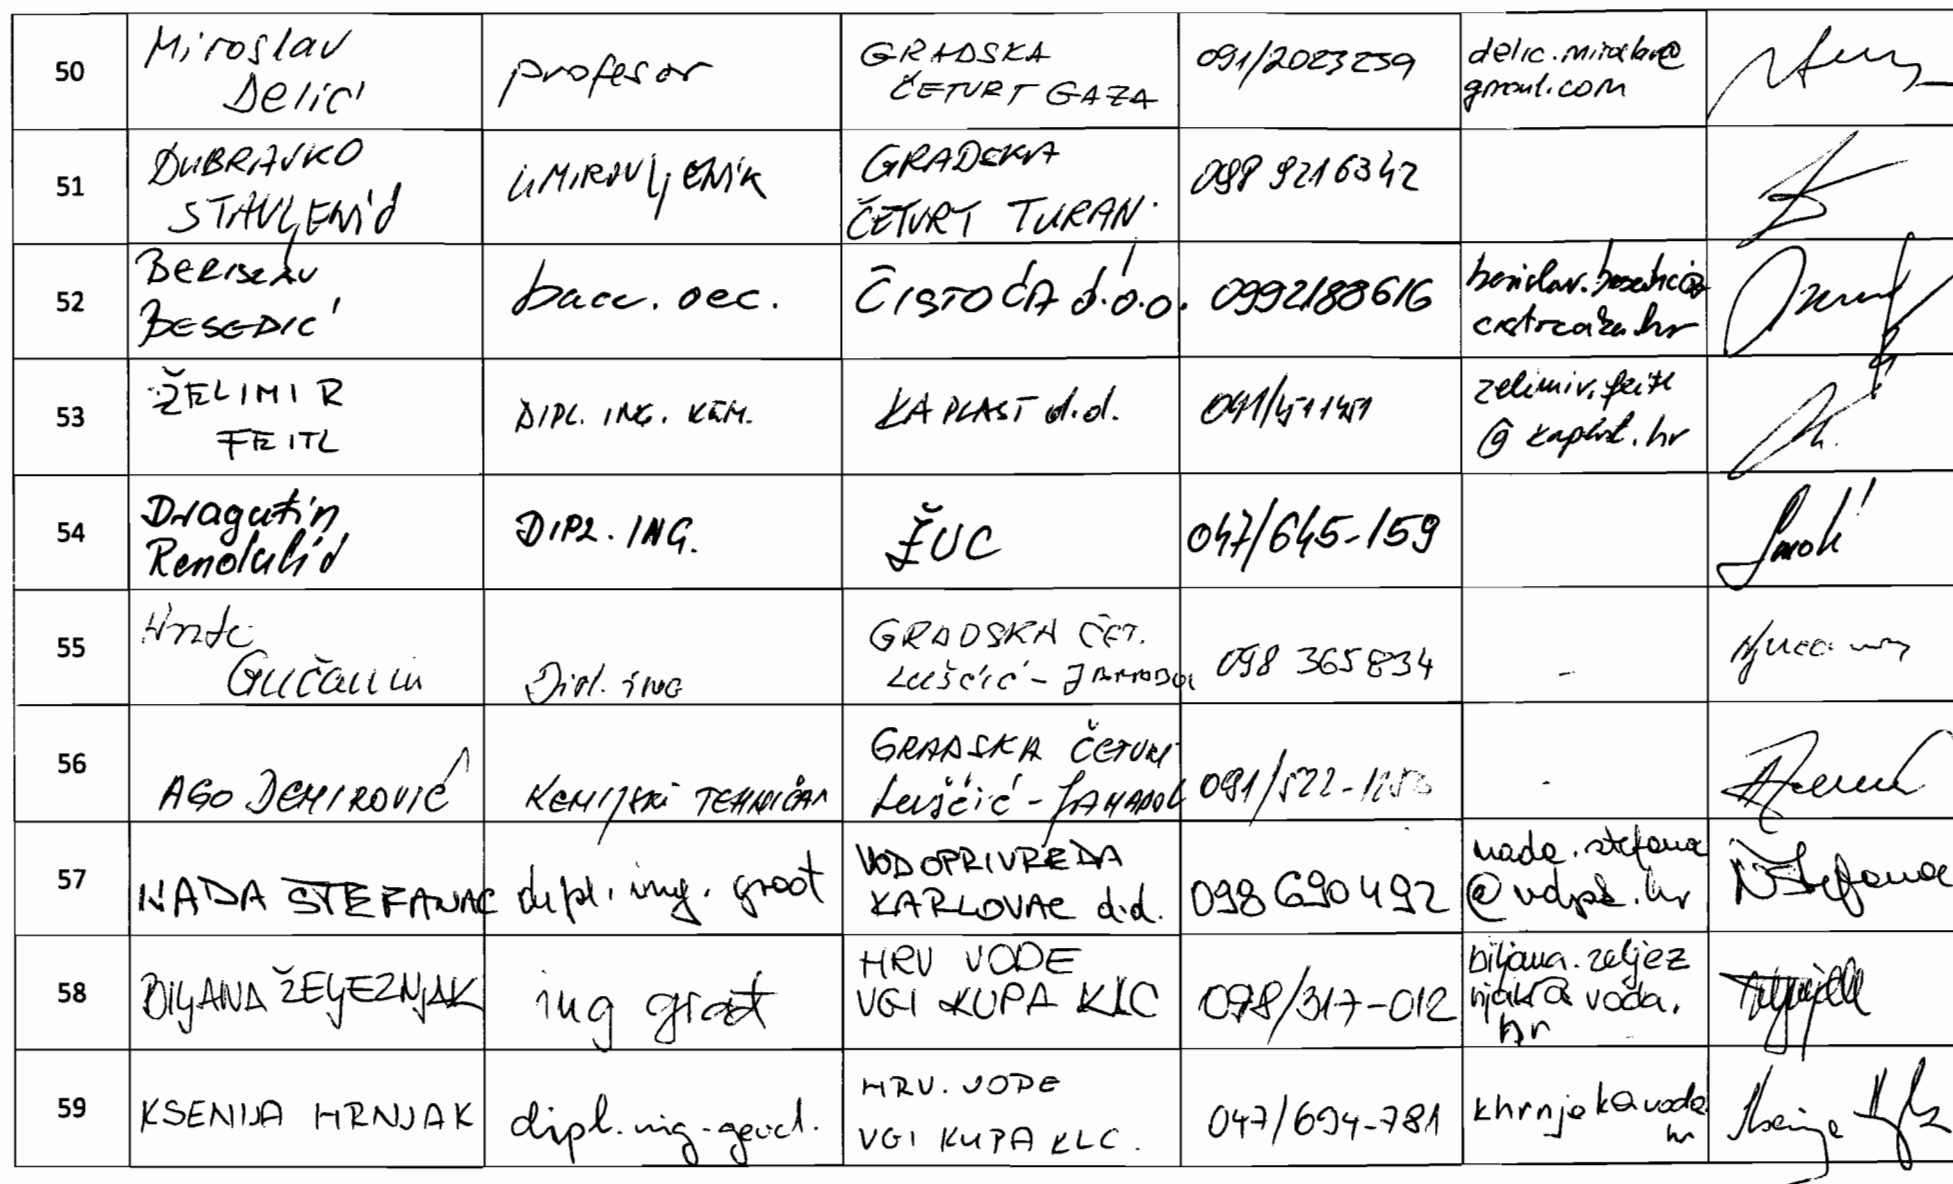 50
Miroslav
Delić
profesor
GRADSKA
ČETVRT GAZA
091/2023259
delic.miroslav@
gmail.com
51
DUBRAVKO
STAVLJENIĆ
UMIROVLJENIK
GRADSKA
ČETVRT TURAN
098 9216342
52
BERISLAV
BESEDIĆ
bacc. oec.
ČISTOĆA d.o.o.
0992188616
berislav.besedic@
53
ŽELIMIR
FEITL
DIPL. ING. KEM.
KAPLAST d.d.
zelimir.feitl
@kaplast.hr
54
Dragutin
Rendulić
DIPL. ING.
ŽUC
047/645-159
55
Gučanin
Dipl. ing
GRADSKA ČET.
Luščić - Jamadol
098 365834
-
56
AGO DEMIROVIĆ
KEMIJSKI TEHNIČAR
GRADSKA ČETVRT
Luščić - JAMADOL
091/522-
-
57
NADA ŠTEFANAC
dipl. ing. građ
VODOPRIVREDA
KARLOVAC d.d.
098 690 492
nada.stefanac
58
BILJANA ŽELJEZNJAK
ing građ
HRV VODE
VGI KUPA KLC
098/317-012
biljana.zeljez
njak@voda.
hr
59
KSENIJA HRNJAK
dipl.ing.geod.
HRV. VODE
VGI KUPA KLC.
047/694-781
khrnjak@voda.
hr